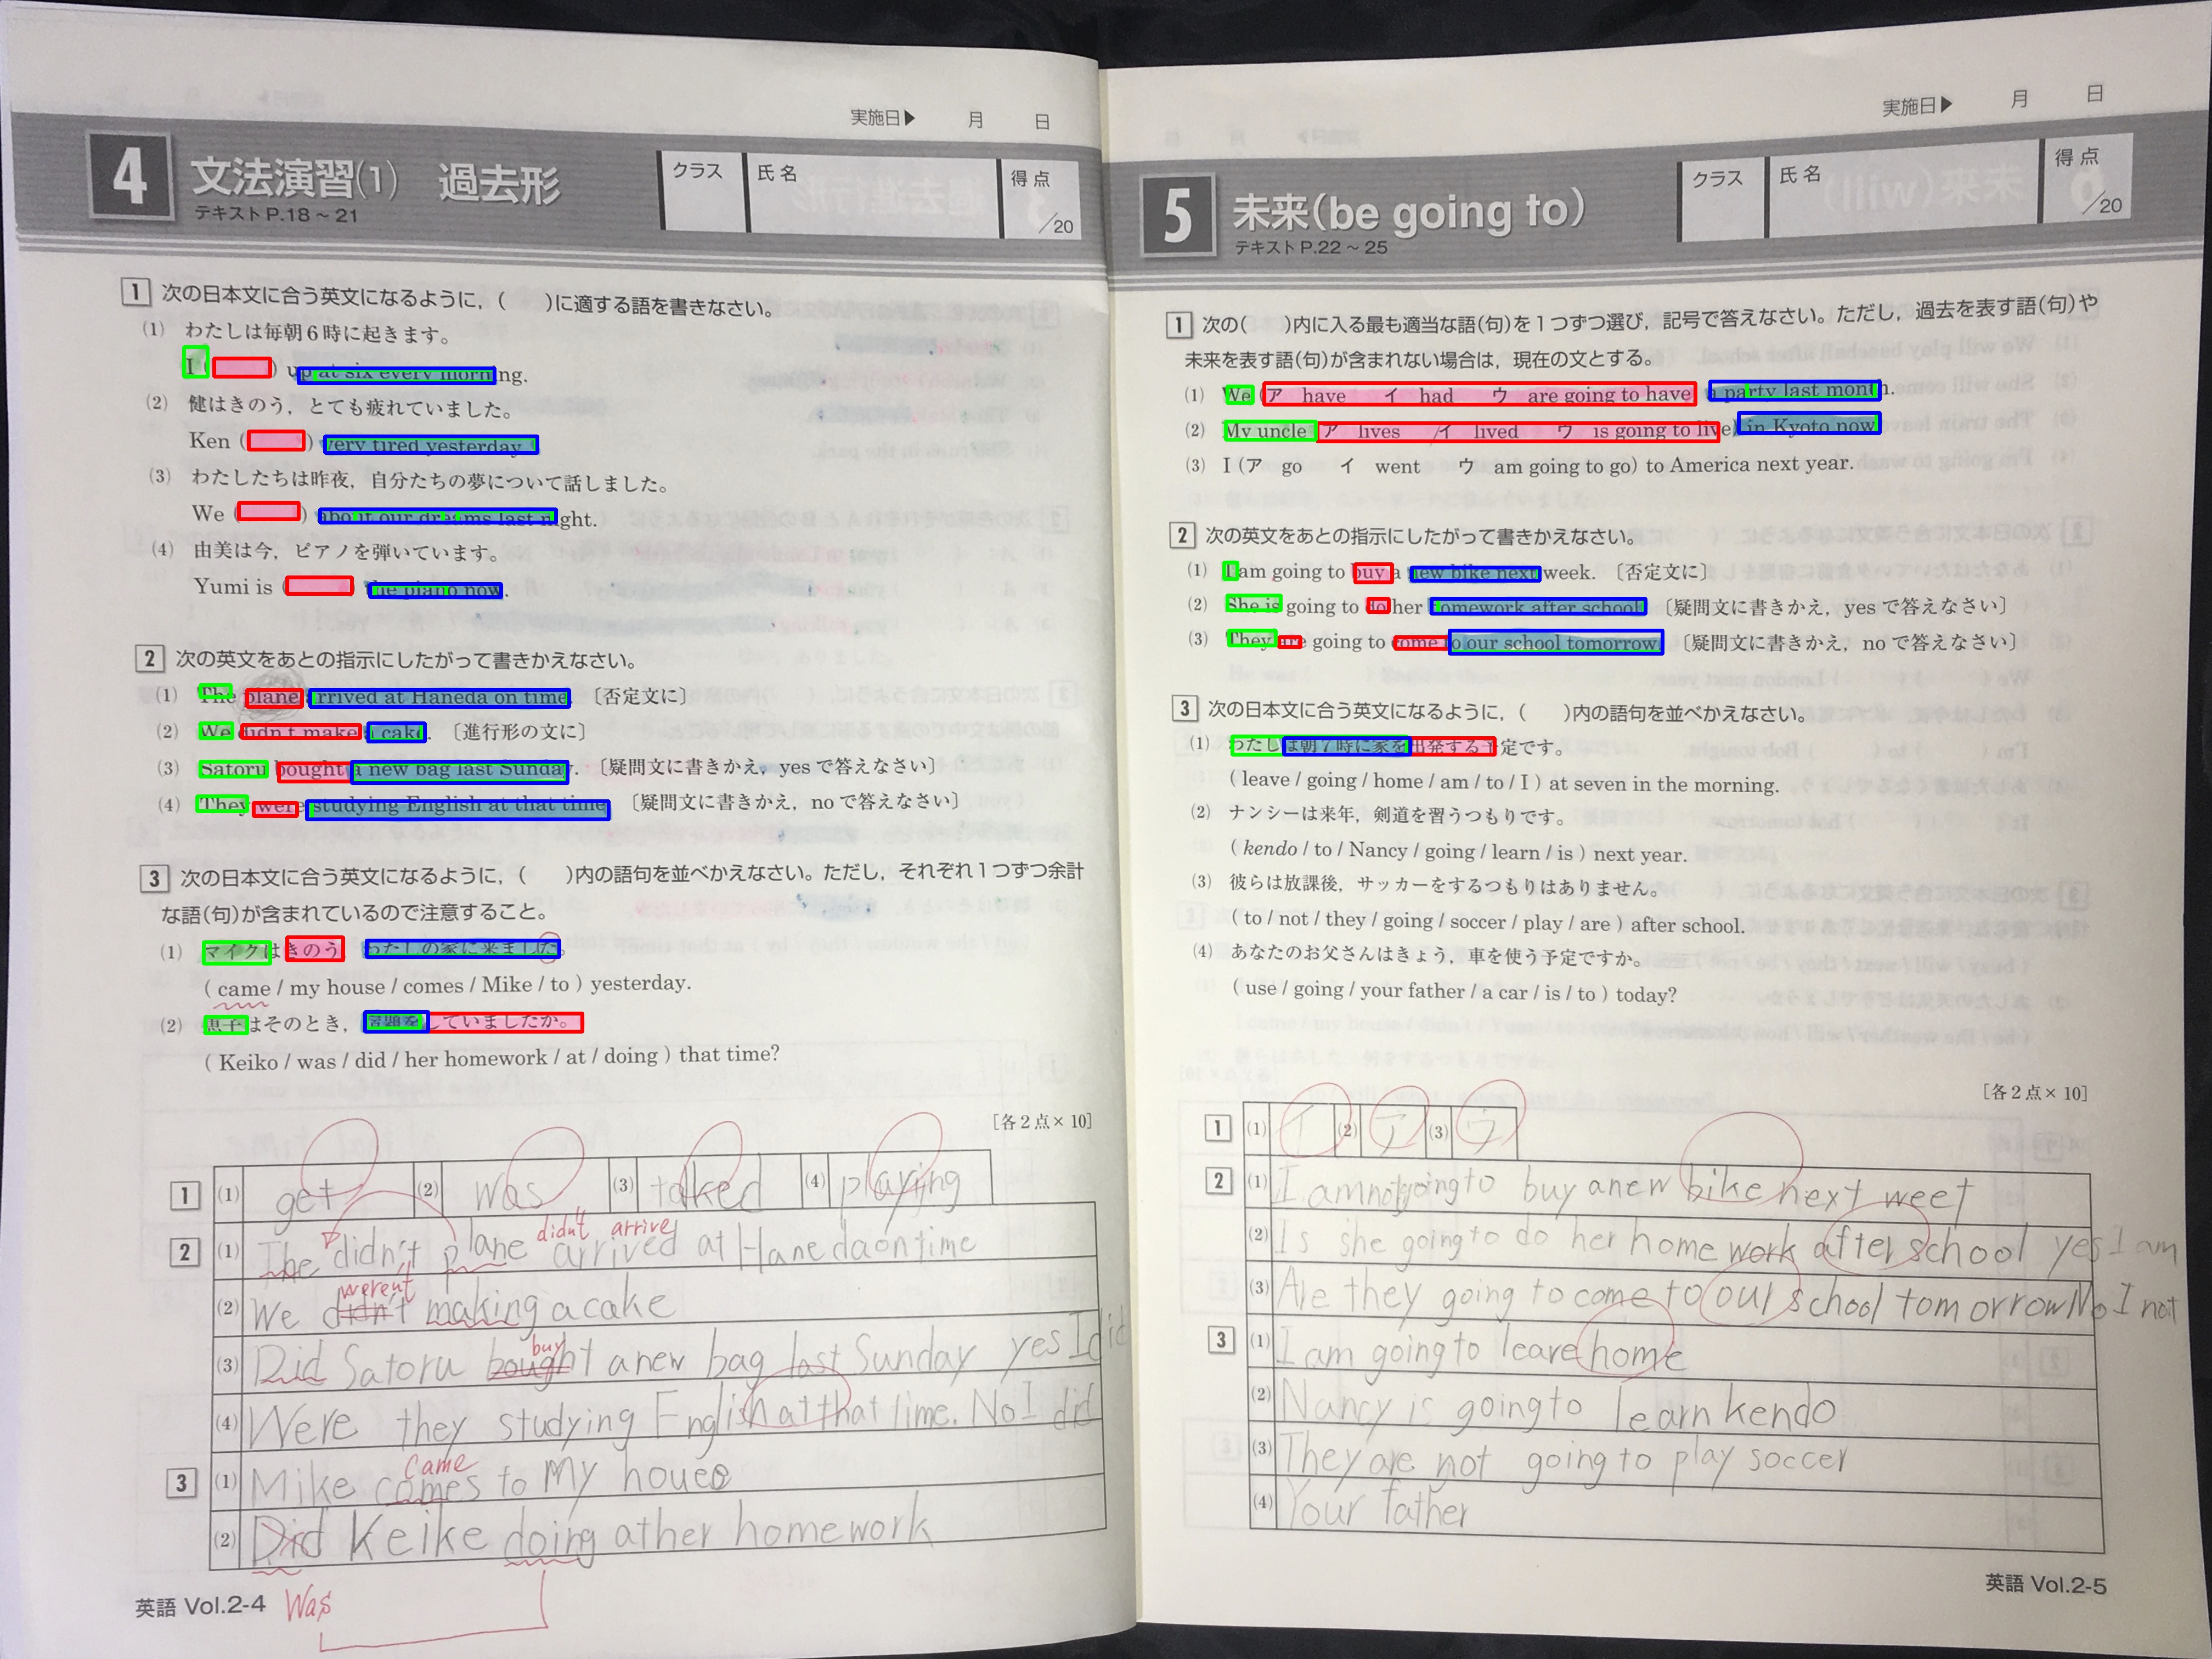 実施日▶ 月 日
4 文法演習(1) 過去形
テキストP.18～21
クラス 氏名 得点 /20
1 次の日本文に合う英文になるように，( )に適する語を書きなさい。
(1) わたしは毎朝6時に起きます。
I ( ) up at six every morning.
(2) 健はきのう，とても疲れていました。
Ken ( ) very tired yesterday.
(3) わたしたちは昨夜，自分たちの夢について話しました。
We ( ) about our dreams last night.
(4) 由美は今，ピアノを弾いています。
Yumi is ( ) the piano now.
2 次の英文をあとの指示にしたがって書きかえなさい。
(1) The plane arrived at Haneda on time. 〔否定文に〕
(2) We didn't make a cake. 〔進行形の文に〕
(3) Satoru bought a new bag last Sunday. 〔疑問文に書きかえ，yesで答えなさい〕
(4) They were studying English at that time. 〔疑問文に書きかえ，noで答えなさい〕
3 次の日本文に合う英文になるように，( )内の語句を並べかえなさい。ただし，それぞれ1つずつ余計
な語(句)が含まれているので注意すること。
(1) マイクはきのう わたしの家に来ました。
( came / my house / comes / Mike / to ) yesterday.
(2) 恵子はそのとき，宿題をしていましたか。
( Keiko / was / did / her homework / at / doing ) that time?
[各2点×10]
1 (1) get (2) was (3) talked (4) playing
didn't arrive
2 (1) The didn't plane arrived at Haneda on time
weren't
(2) We didn't making a cake
buy
(3) Did Satoru bought a new bag last Sunday yes I did
(4) Were they studying English at that time. No I did
came
3 (1) Mike comes to my
(2) Did Keike doing at her homework
Was
英語 Vol.2-4
実施日▶ 月 日
5 未来(be going to)
テキストP.22～25
クラス 氏名 得点 /20
1 次の( )内に入る最も適当な語(句)を1つずつ選び，記号で答えなさい。ただし，過去を表す語(句)や
未来を表す語(句)が含まれない場合は，現在の文とする。
(1) We (ア have イ had ウ are going to have) a party last month.
(2) My uncle (ア lives イ lived ウ is going to live) in Kyoto now.
(3) I (ア go イ went ウ am going to go) to America next year.
2 次の英文をあとの指示にしたがって書きかえなさい。
(1) I am going to buy a new bike next week. 〔否定文に〕
(2) She is going to do her homework after school. 〔疑問文に書きかえ，yesで答えなさい〕
(3) They are going to come to our school tomorrow. 〔疑問文に書きかえ，noで答えなさい〕
3 次の日本文に合う英文になるように，( )内の語句を並べかえなさい。
(1) わたしは朝7時に家を出発する予定です。
( leave / going / home / am / to / I ) at seven in the morning.
(2) ナンシーは来年，剣道を習うつもりです。
( kendo / to / Nancy / going / learn / is ) next year.
(3) 彼らは放課後，サッカーをするつもりはありません。
( to / not / they / going / soccer / play / are ) after school.
(4) あなたのお父さんはきょう，車を使う予定ですか。
( use / going / your father / a car / is / to ) today?
[各2点×10]
1 (1) イ (2) ア (3) ウ
2 (1) I am not going to buy a new bike next weet
(2) Is she going to do her home work after school yes I am
(3) Are they going to come to our school tomorrow No I not
3 (1) I am going to leave home
(2) Nancy is going to learn kendo
(3) They are not going to play soccer
(4) Your father
英語 Vol.2-5